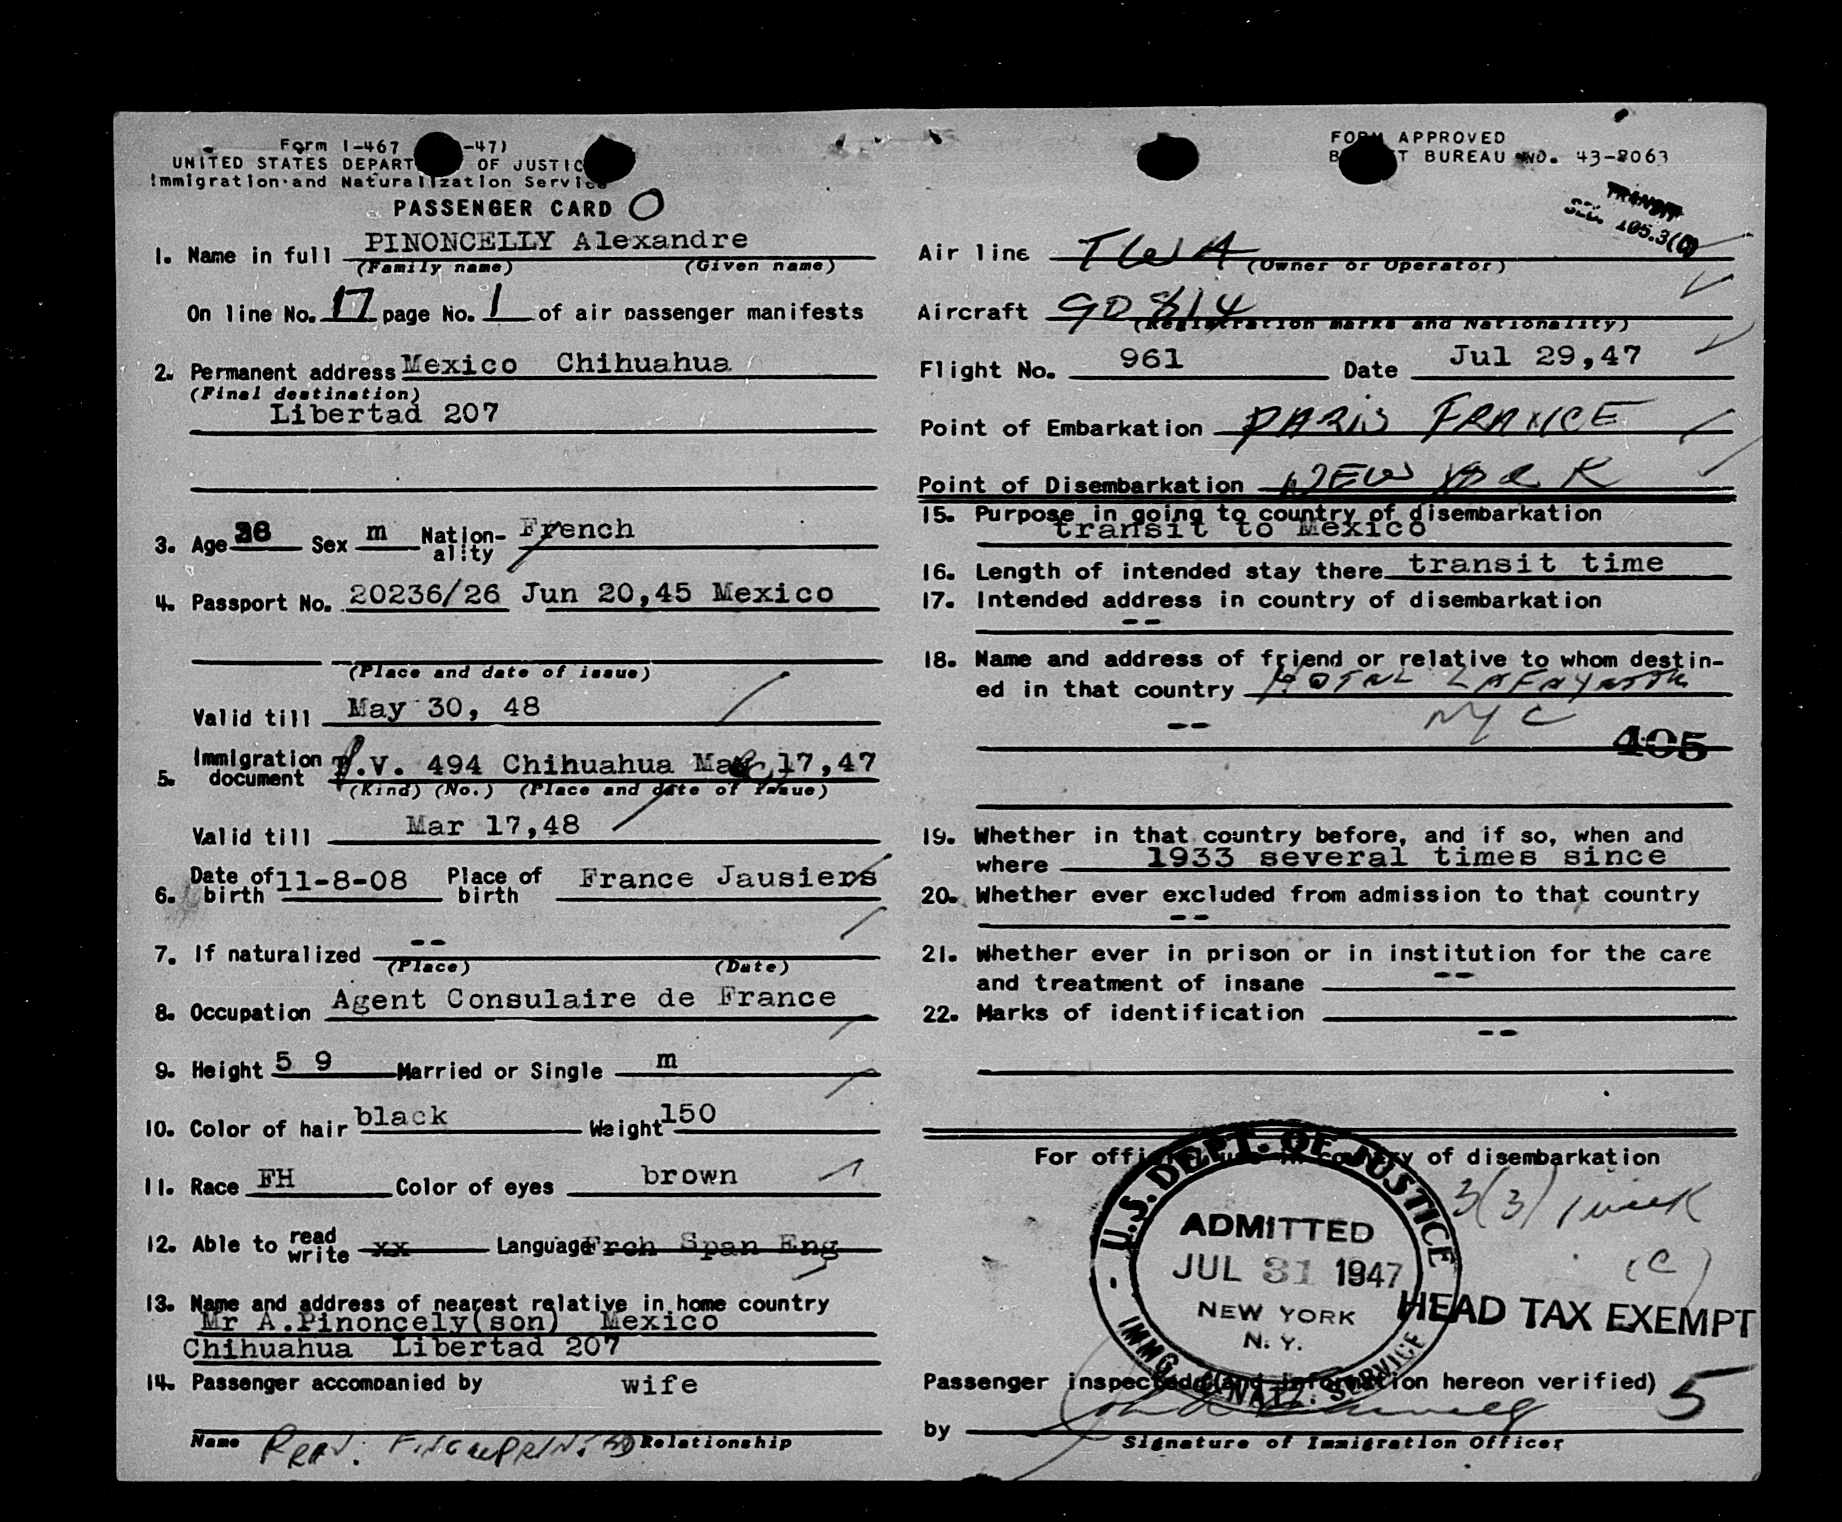 Form I-467 -47)
UNITED STATES DEPART OF JUSTIC
Immigration and Naturalization Service
PASSENGER CARD O
1. Name in full PINONCELLY Alexandre
(Family name) (Given name)
On line No. 17 page No. 1 of air passenger manifests
2. Permanent address Mexico Chihuahua
(Final destination)
Libertad 207
3. Age Sex m Nation-ality French
4. Passport No. 20236/26 Jun 20,45 Mexico
(Place and date of issue)
Valid till May 30, 48
5. Immigration document .V. 494 Chihuahua 17,47
(Kind) (No.) (Place and date of issue)
Valid till Mar 17,48
6. Date of birth 11-8-08 Place of birth France Jausiers
7. If naturalized --
(Place) (Date)
8. Occupation Agent Consulaire de France
9. Height 5 9 Married or Single m
10. Color of hair black Weight 150
11. Race FH Color of eyes brown
12. Able to read write xx Language Frch Span Eng
13. Name and address of nearest relative in home country
Mr A.Pinoncely(son) Mexico
Chihuahua Libertad 207
14. Passenger accompanied by wife
Name Relationship
PREV. FINGERPRINTED
FORM APPROVED
B T BUREAU NO. 43-R063
TRANSIT
SEC. 105.3(C)
Air line TWA
(Owner or Operator)
Aircraft 90814
(Registration marks and Nationality)
Flight No. 961 Date Jul 29,47
Point of Embarkation PARIS FRANCE
Point of Disembarkation NEW YORK
15. Purpose in going to country of disembarkation
transit to Mexico
16. Length of intended stay there transit time
17. Intended address in country of disembarkation
--
18. Name and address of friend or relative to whom destin-
ed in that country HOTEL LAFAYETTE
-- NYC
405
19. Whether in that country before, and if so, when and
where 1933 several times since
20. Whether ever excluded from admission to that country
--
21. Whether ever in prison or in institution for the care
and treatment of insane --
22. Marks of identification
--
For official use in country of disembarkation
3(3) 1 week
(C)
U.S. DEPT. OF JUSTICE
ADMITTED
JUL 31 1947
NEW YORK
N. Y.
IMMG. & NATZ. SERVICE
HEAD TAX EXEMPT
Passenger inspected (and information hereon verified) 5
by
Signature of Immigration Officer